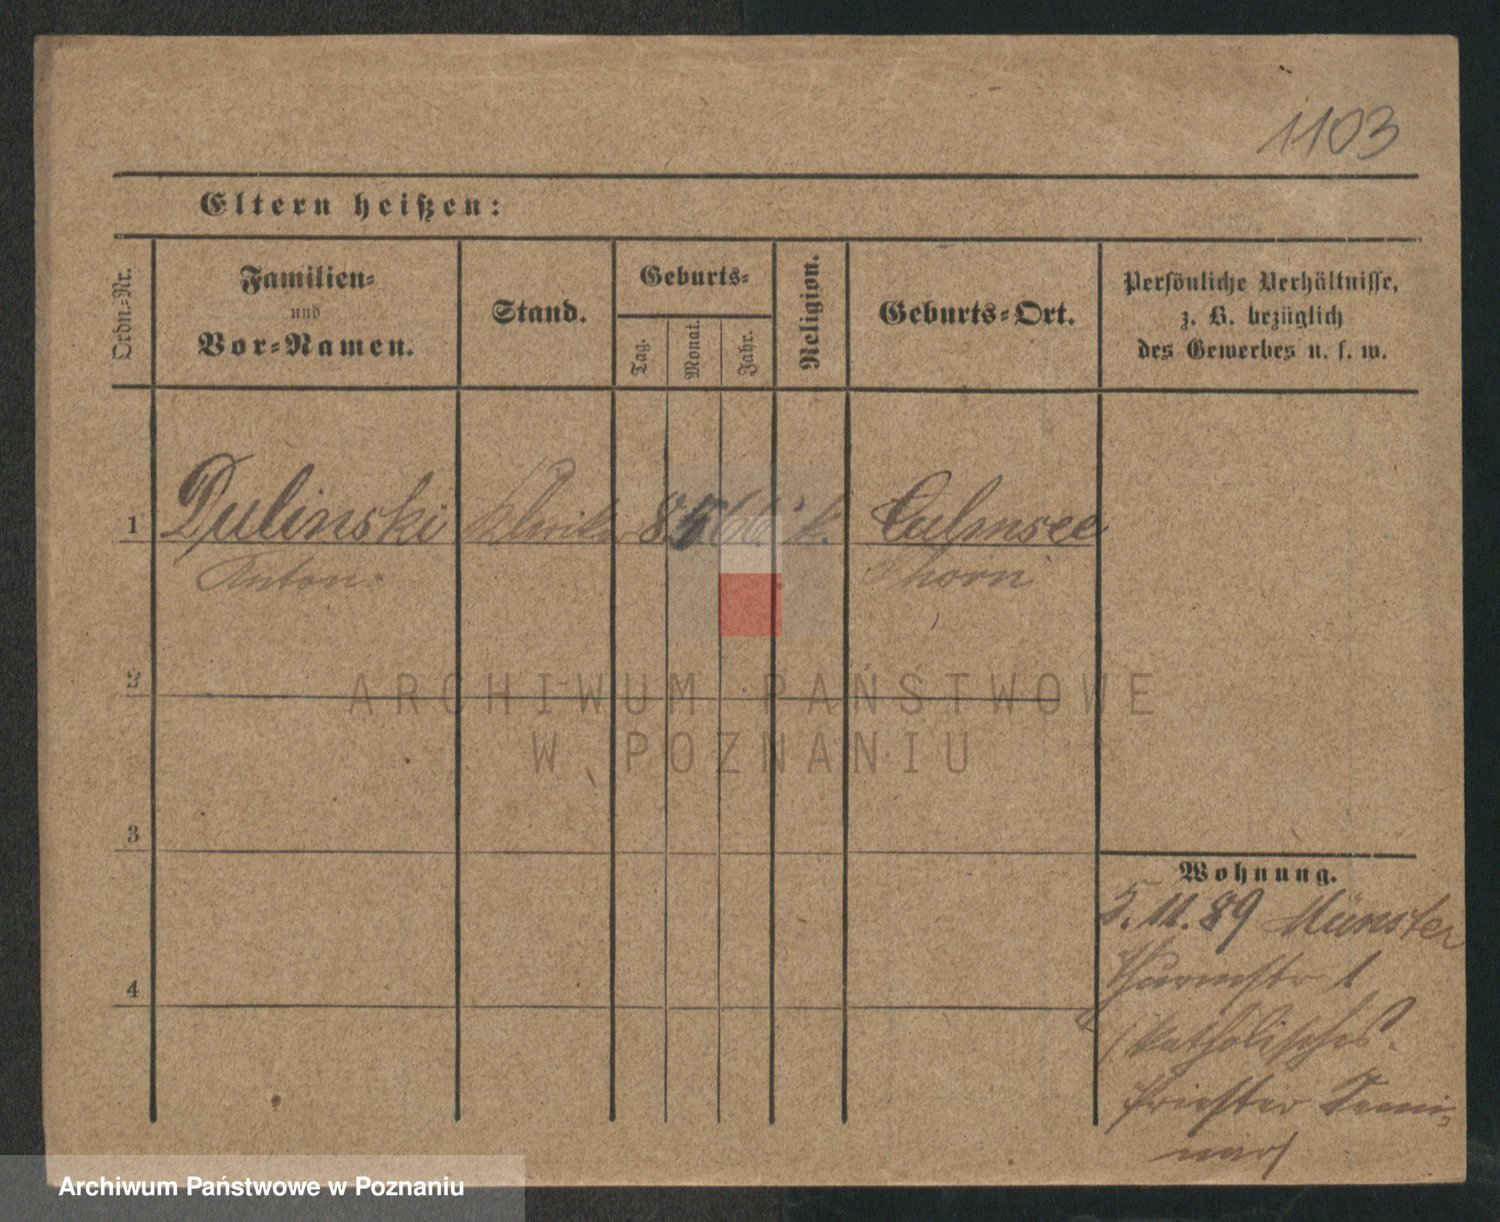 1103
Eltern heißen:
Ordn.-Nr.
Familien-
und
Vor-Namen.
Stand.
Geburts-
Tag.
Monat.
Jahr.
Religion.
Geburts-Ort.
Persönliche Verhältnisse,
z. B. bezüglich
des Gewerbes u. s. w.
1 Dulinski Kleriker 8 5 k. Culmsee
Anton. Thorn
2
3
4
Wohnung.
5.11.89 Münster
1
(katholisches
Priester Semi-
nar)
ARCHIWUM PAŃSTWOWE
W POZNANIU
Archiwum Państwowe w Poznaniu